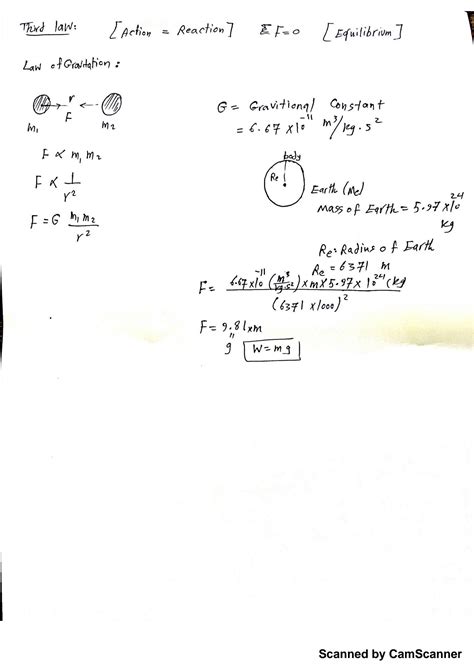 Third law: [Action = Reaction] Σ F=0 [Equilibrium]
Law of Gravitation:
r
F
m1 m2
F ∝ m1 m2
F ∝ 1/r^2
F = G m1 m2 / r^2
G = Gravitional Constant
= 6.67 x10^-11 m^3/kg.s^2
body
Re
Earth (Me)
Mass of Earth = 5.97 x10^24 kg
Re: Radius of Earth
Re = 6371 m
F = 6.67x10^-11 (m^3/kg s^2) x m x 5.97 x 10^24 (kg / (6371 x1000)^2
F = 9.81xm
"
g W = mg
Scanned by CamScanner